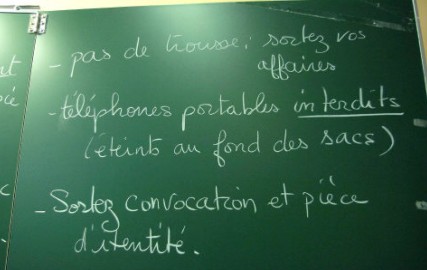 nt
- pas de trousse: sortez vos
affaires
- téléphones portables interdits
(éteints au fond des sacs)
- Sortez convocation et pièce
d'identité.